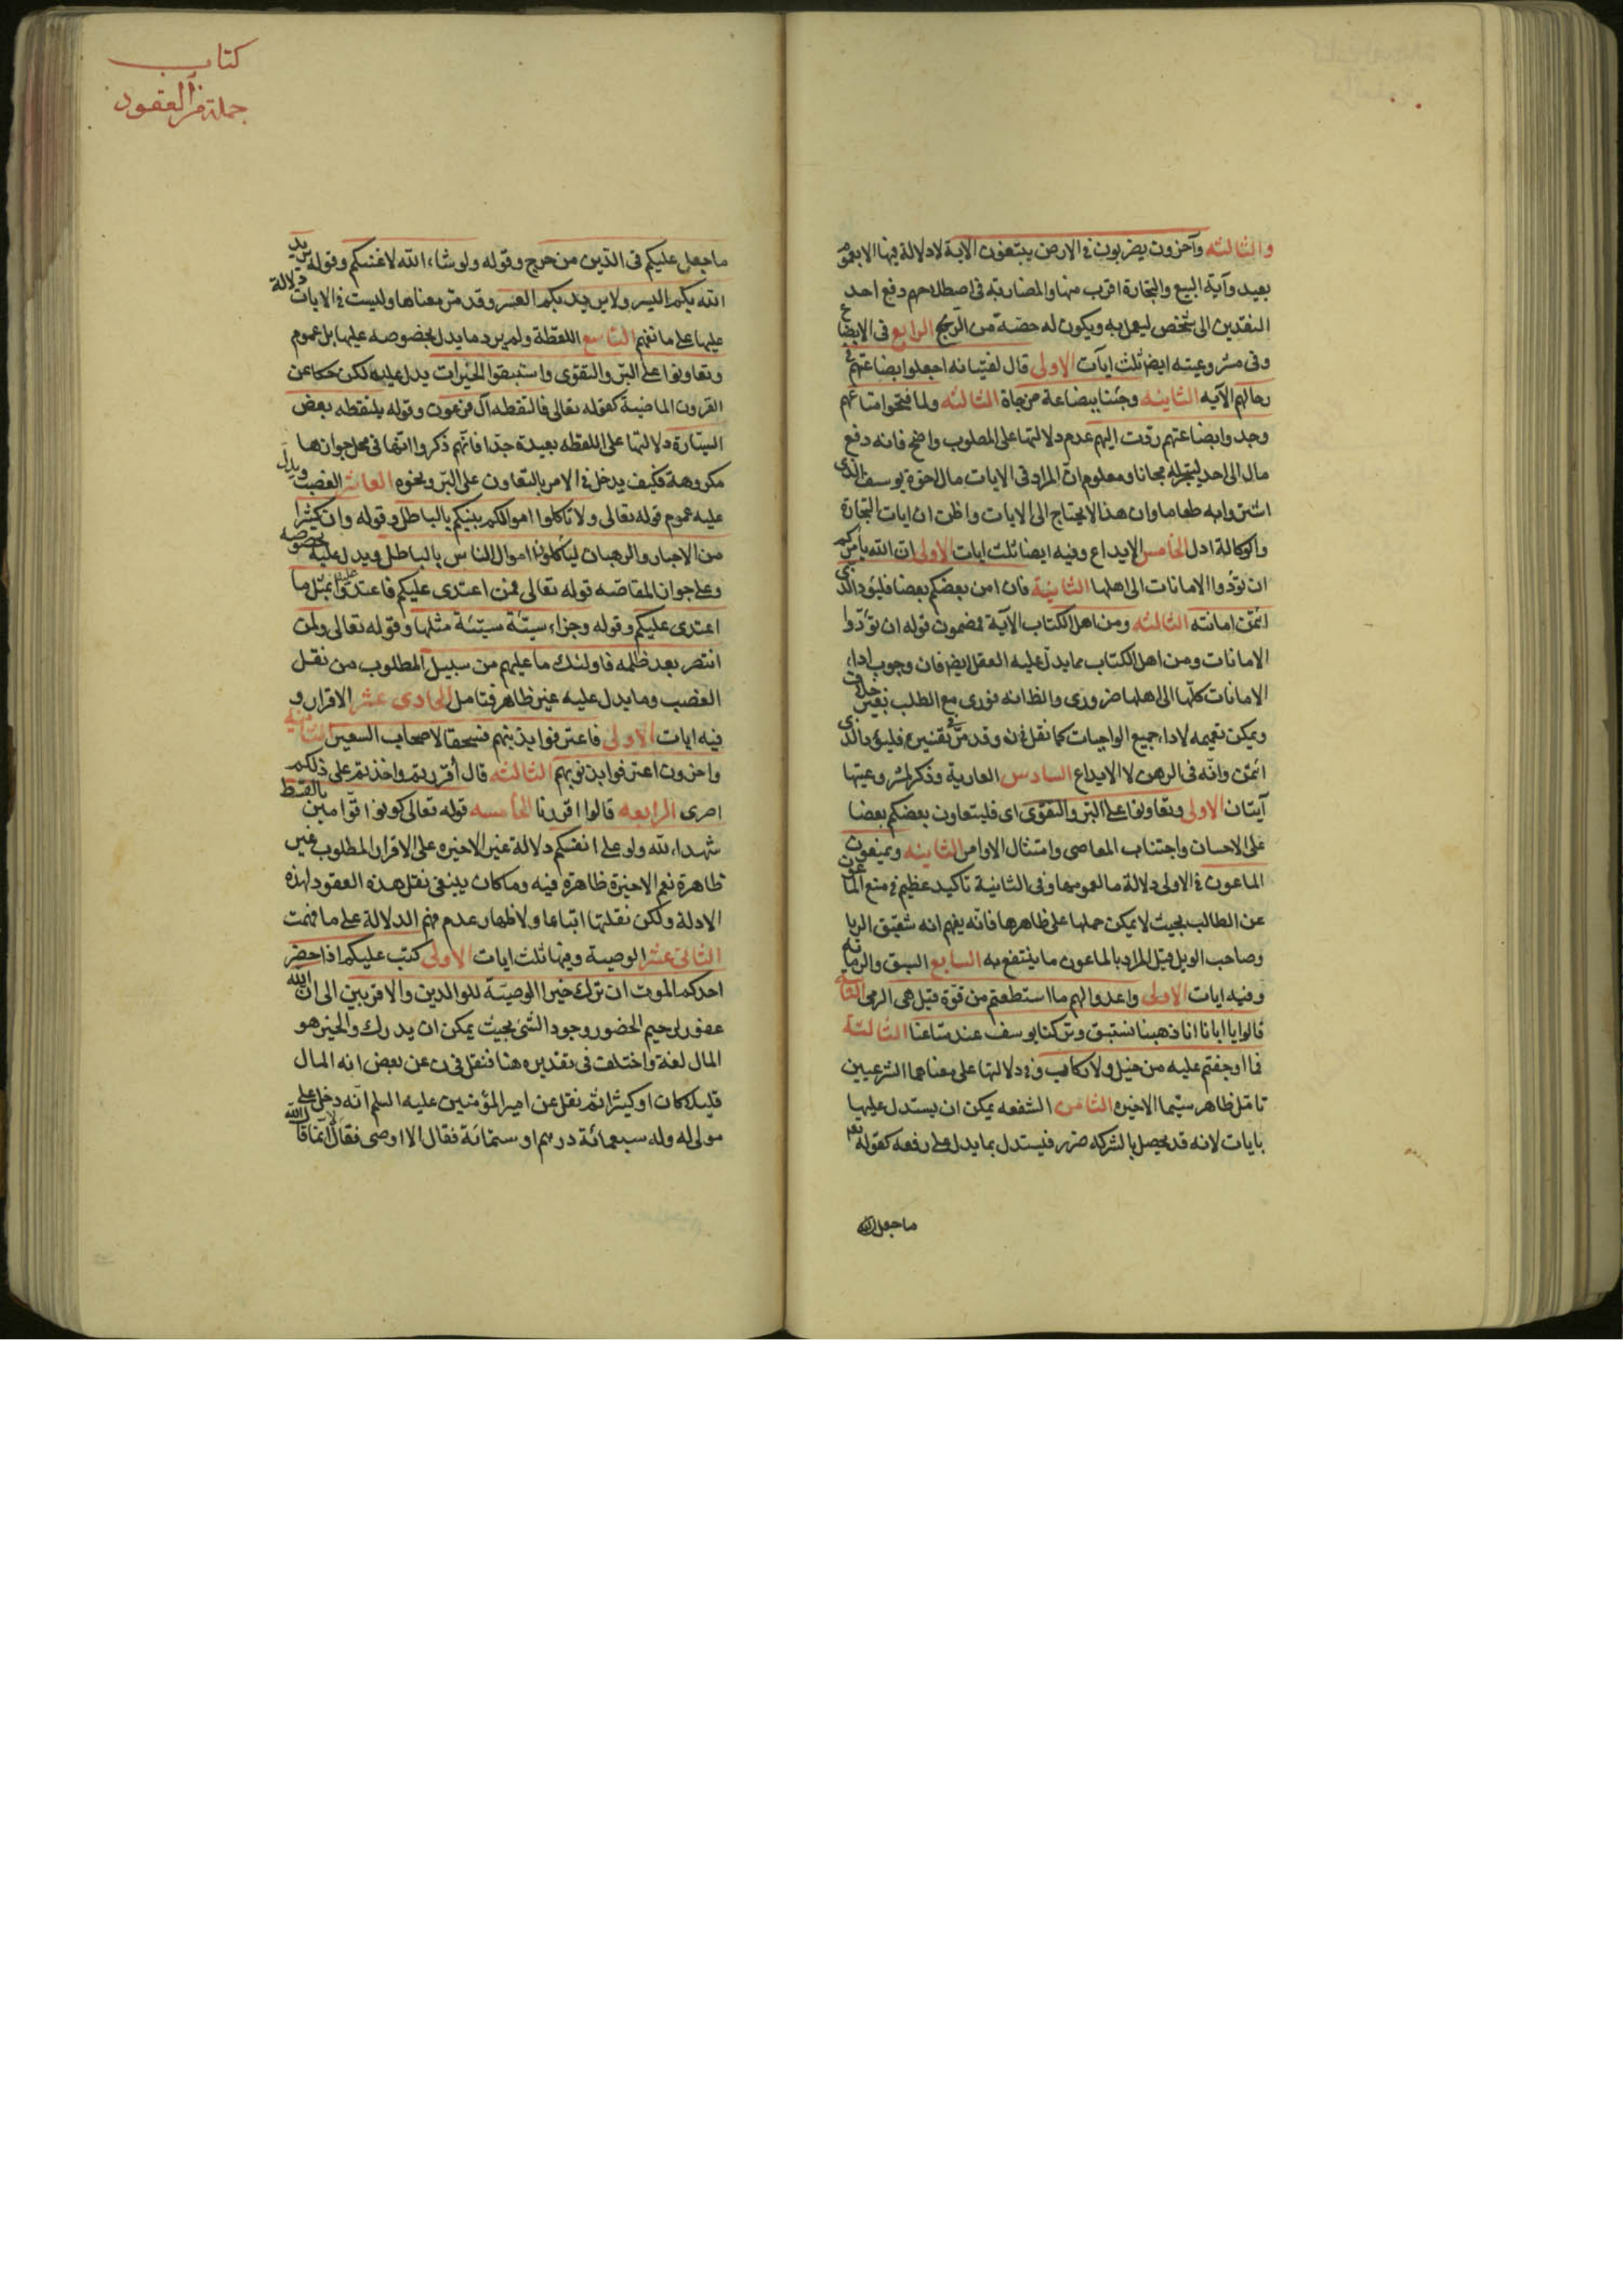 والثالثة وآخرون يضربون في الارض يبتغون الآية لا دلالة فيها الا بعموم
بعيد وآية البيع والتجارة اقرب منها والمضاربة في اصطلاحهم دفع احد
النقدين الى شخص ليعمل به ويكون له حصة من الربح الرابع في الابضاع
وفي مشروعيته ايضا ثلث ايات الاولى قال لفتيانه اجعلوا بضاعتهم في
رحالهم الآيه الثانيه وجئنا ببضاعة مزجاة الثالثه ولما فتحوا متاعهم
وجدوا بضاعتهم ردّت اليهم عدم دلالتها على المطلوب واضح فانه دفع
مال الى احد ليتجر له مجانا ومعلوم ان المراد في الايات مال اخوة يوسف الذى
اشتروا به طعاما وان هذا لا يحتاج الى الايات واظن ان ايات التجارة
والوكالة ادل الخامس الايداع وفيه ايضا ثلث ايات الاولى ان الله يأمركم
ان تؤدوا الامانات الى اهلها الثانية فان امن بعضكم بعضا فليؤد الذى
ائتمن امانته الثالثه ومن اهل الكتاب الآية فمضمون قوله ان تؤدّوا
الامانات ومن اهل الكتاب مما يدلّ عليه العقل ايضا فان وجوب اداء
الامانات كلّها الى اهلها ضرورى والظ انه فورى مع الطلب بغير خلاف
ويمكن تعميمه لاداء جميع الواجبات كما نقل في ن وقد مرّ في تفسير فليؤد الذى
ائتمن وانّه في الرهن لا الايداع السادس العارية وذكر لمشروعيتها
آيتان الاولى وتعاونوا على البر والتقوى اى فليتعاون بعضكم بعضا
على الاحسان واجتناب المعاصى وامتثال الاوامر الثانيه ويمنعون
الماعون في الاولى دلالة ما لعمومها وفي الثانية تأكيد عظيم في منع الماعون
عن الطالب بحيث لا يمكن حملها على ظاهرها فانّه يفهم انه شقيق الريا
وصاحب الويل قيل المراد بالماعون ما ينتفع به السابع السبق والرماية
وفيه ايات الاولى واعدوا لهم ما استطعتم من قوة قيل هى الرمى الثانية
قالوا يا ابانا انا ذهبنا نستبق وتركنا يوسف عند متاعنا الثالثة
فما اوجفتم عليه من خيل ولا ركاب وفي دلالتها على معناهما الشرعيين
تامّل ظاهر سيّما الاخيره الثامن الشفعه يمكن ان يستدل عليها
بايات لانه قد يحصل بالشركه ضرر فيستدل بما يدل على رفعه كقوله تعم
ما جعل الله
كتاب
جملة من العقود
ما جعل عليكم في الدّين من حرج وقوله ولو شاء الله لاعنتكم وقوله يريد
الله بكم اليسر ولا يريد بكم العسر وقد مرّ معناها وليست في الايات دلالة
عليها على ما نفهم التاسع اللقطة ولم يرد ما يدل بخصوصه عليها بل عموم
وتعاونوا على البرّ والتقوى واستبقوا الخيرات يدل عليه لكن حكا عن
القرون الماضية كقوله تعالى فالتقطه آل فرعون وقوله يلتقطه بعض
السيّارة دلالتها على اللقطه بعيدة جدّا فانّهم ذكروا انّها في محل جوازها
مكروهة فكيف يدخل في الامر بالتعاون على البرّ ونحوه العاشر الغصب ويدلّ
عليه عموم قوله تعالى ولا تأكلوا اموالكم بينكم بالباطل وقوله وان كثيرا
من الاحبار والرهبان ليأكلون اموال الناس بالباطل ويدل عليه بخصوصه
وعلى جواز المقاصّه قوله تعالى فمن اعتدى عليكم فاعتدوا عليه بمثل ما
اعتدى عليكم وقوله وجزاء سيّئة سيّئة مثلها وقوله تعالى ولمن
انتصر بعد ظلمه فاولئك ما عليهم من سبيل المطلوب من نقل
الغصب وما يدل عليه غير ظاهر فتامل الحادى عشر الاقرار و
فيه ايات الاولى فاعترفوا بذنبهم فسحقا لاصحاب السعير الثانية
واخرون اعترفوا بذنوبهم الثالثه قال أقررتم واخذتم على ذلكم
اصرى الرابعه قالوا اقررنا الخامسه قوله تعالى كونوا قوّامين بالقسط
شهداء لله ولو على انفسكم دلالة غير الاخيره على الاقرار المطلوب غير
ظاهرة نعم الاخيرة ظاهرة فيه وما كان ينبغي نقل هذه العقود لهذه
الادلة ولكن نقلتها اتباعا ولاظهار عدم فهم الدلالة على ما فهمت
الثانى عشر الوصية وفيها ثلث ايات الاولى كتب عليكم اذا حضر
احدكم الموت ان ترك خيرا الوصيّة للوالدين والاقربين الى ان الله
غفور رحيم الحضور وجود الشئ بحيث يمكن ان يدرك والخير هو
المال لغة واختلف في تقديره هنا فنقل في ن عن بعض انه المال
قليلا كان او كثيرا ثم نقل عن امير المؤمنين عليه السلم انّه دخل على
مولى له وله سبعمائة درهم او ستمائة فقال الا اوصى فقال لا انّما قال الله